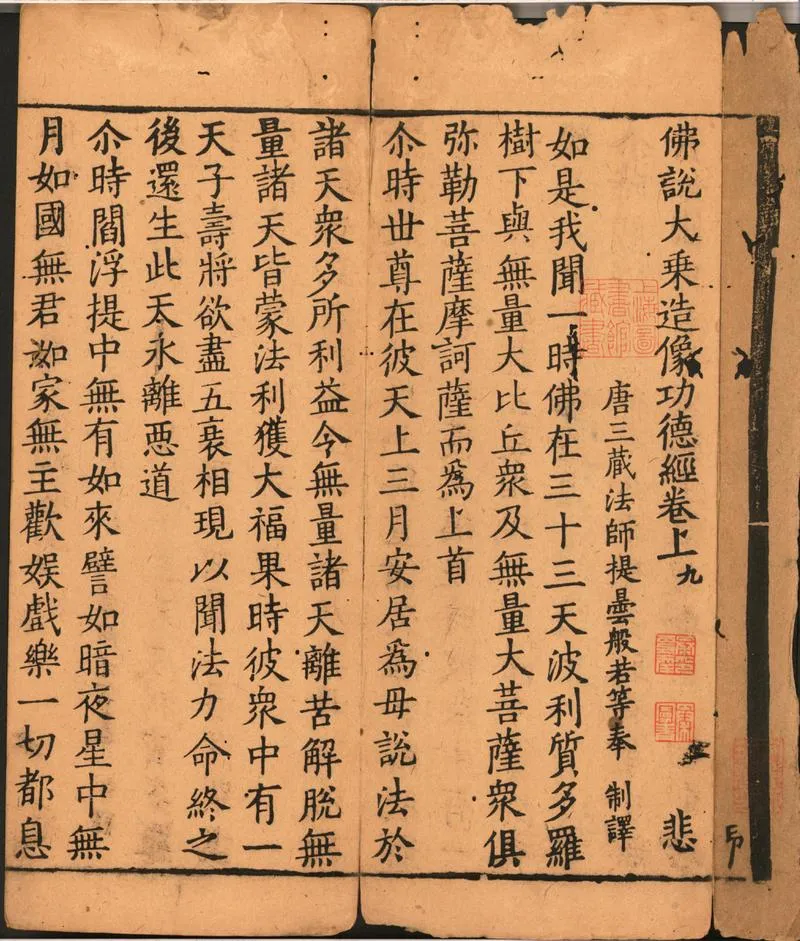 佛說大乗造像功德經卷上 九 悲
唐三蔵法師提曇般若等奉 制譯
如是我聞一時佛在三十三天波利質多羅
樹下與無量大比丘衆及無量大菩薩衆俱
弥勒菩薩摩訶薩而爲上首
尒時世尊在彼天上三月安居爲母說法於
諸天衆多所利益今無量諸天離苦解脫無
量諸天皆蒙法利獲大福果時彼衆中有一
天子壽將欲盡五衰相現以聞法力命終之
後還生此天永離惡道
尒時閻浮提中無有如來譬如暗夜星中無
月如國無君如家無主歡娱戲樂一切都息
上海圖
書館
藏書